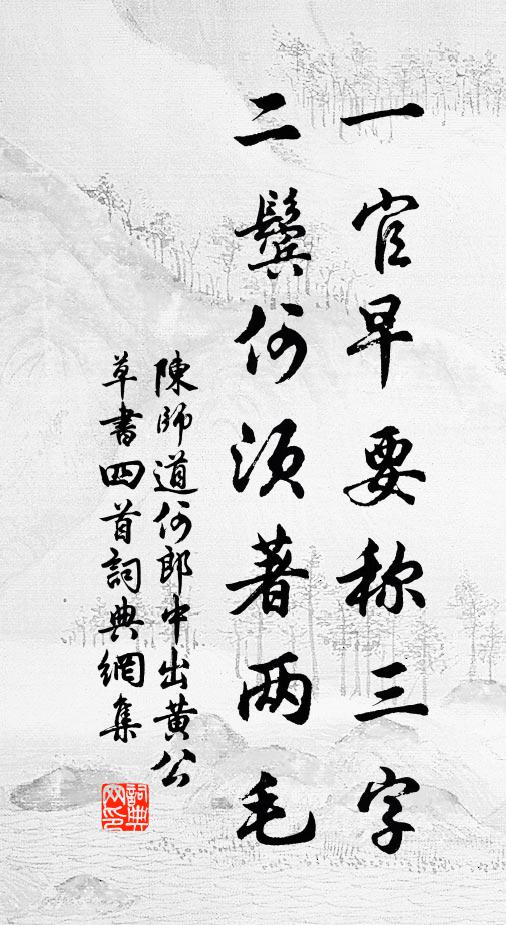 一官早要称三字
二鬓何须著两毛
陳師道何郎中出黃公
草書四首詞典網集
詞典网印